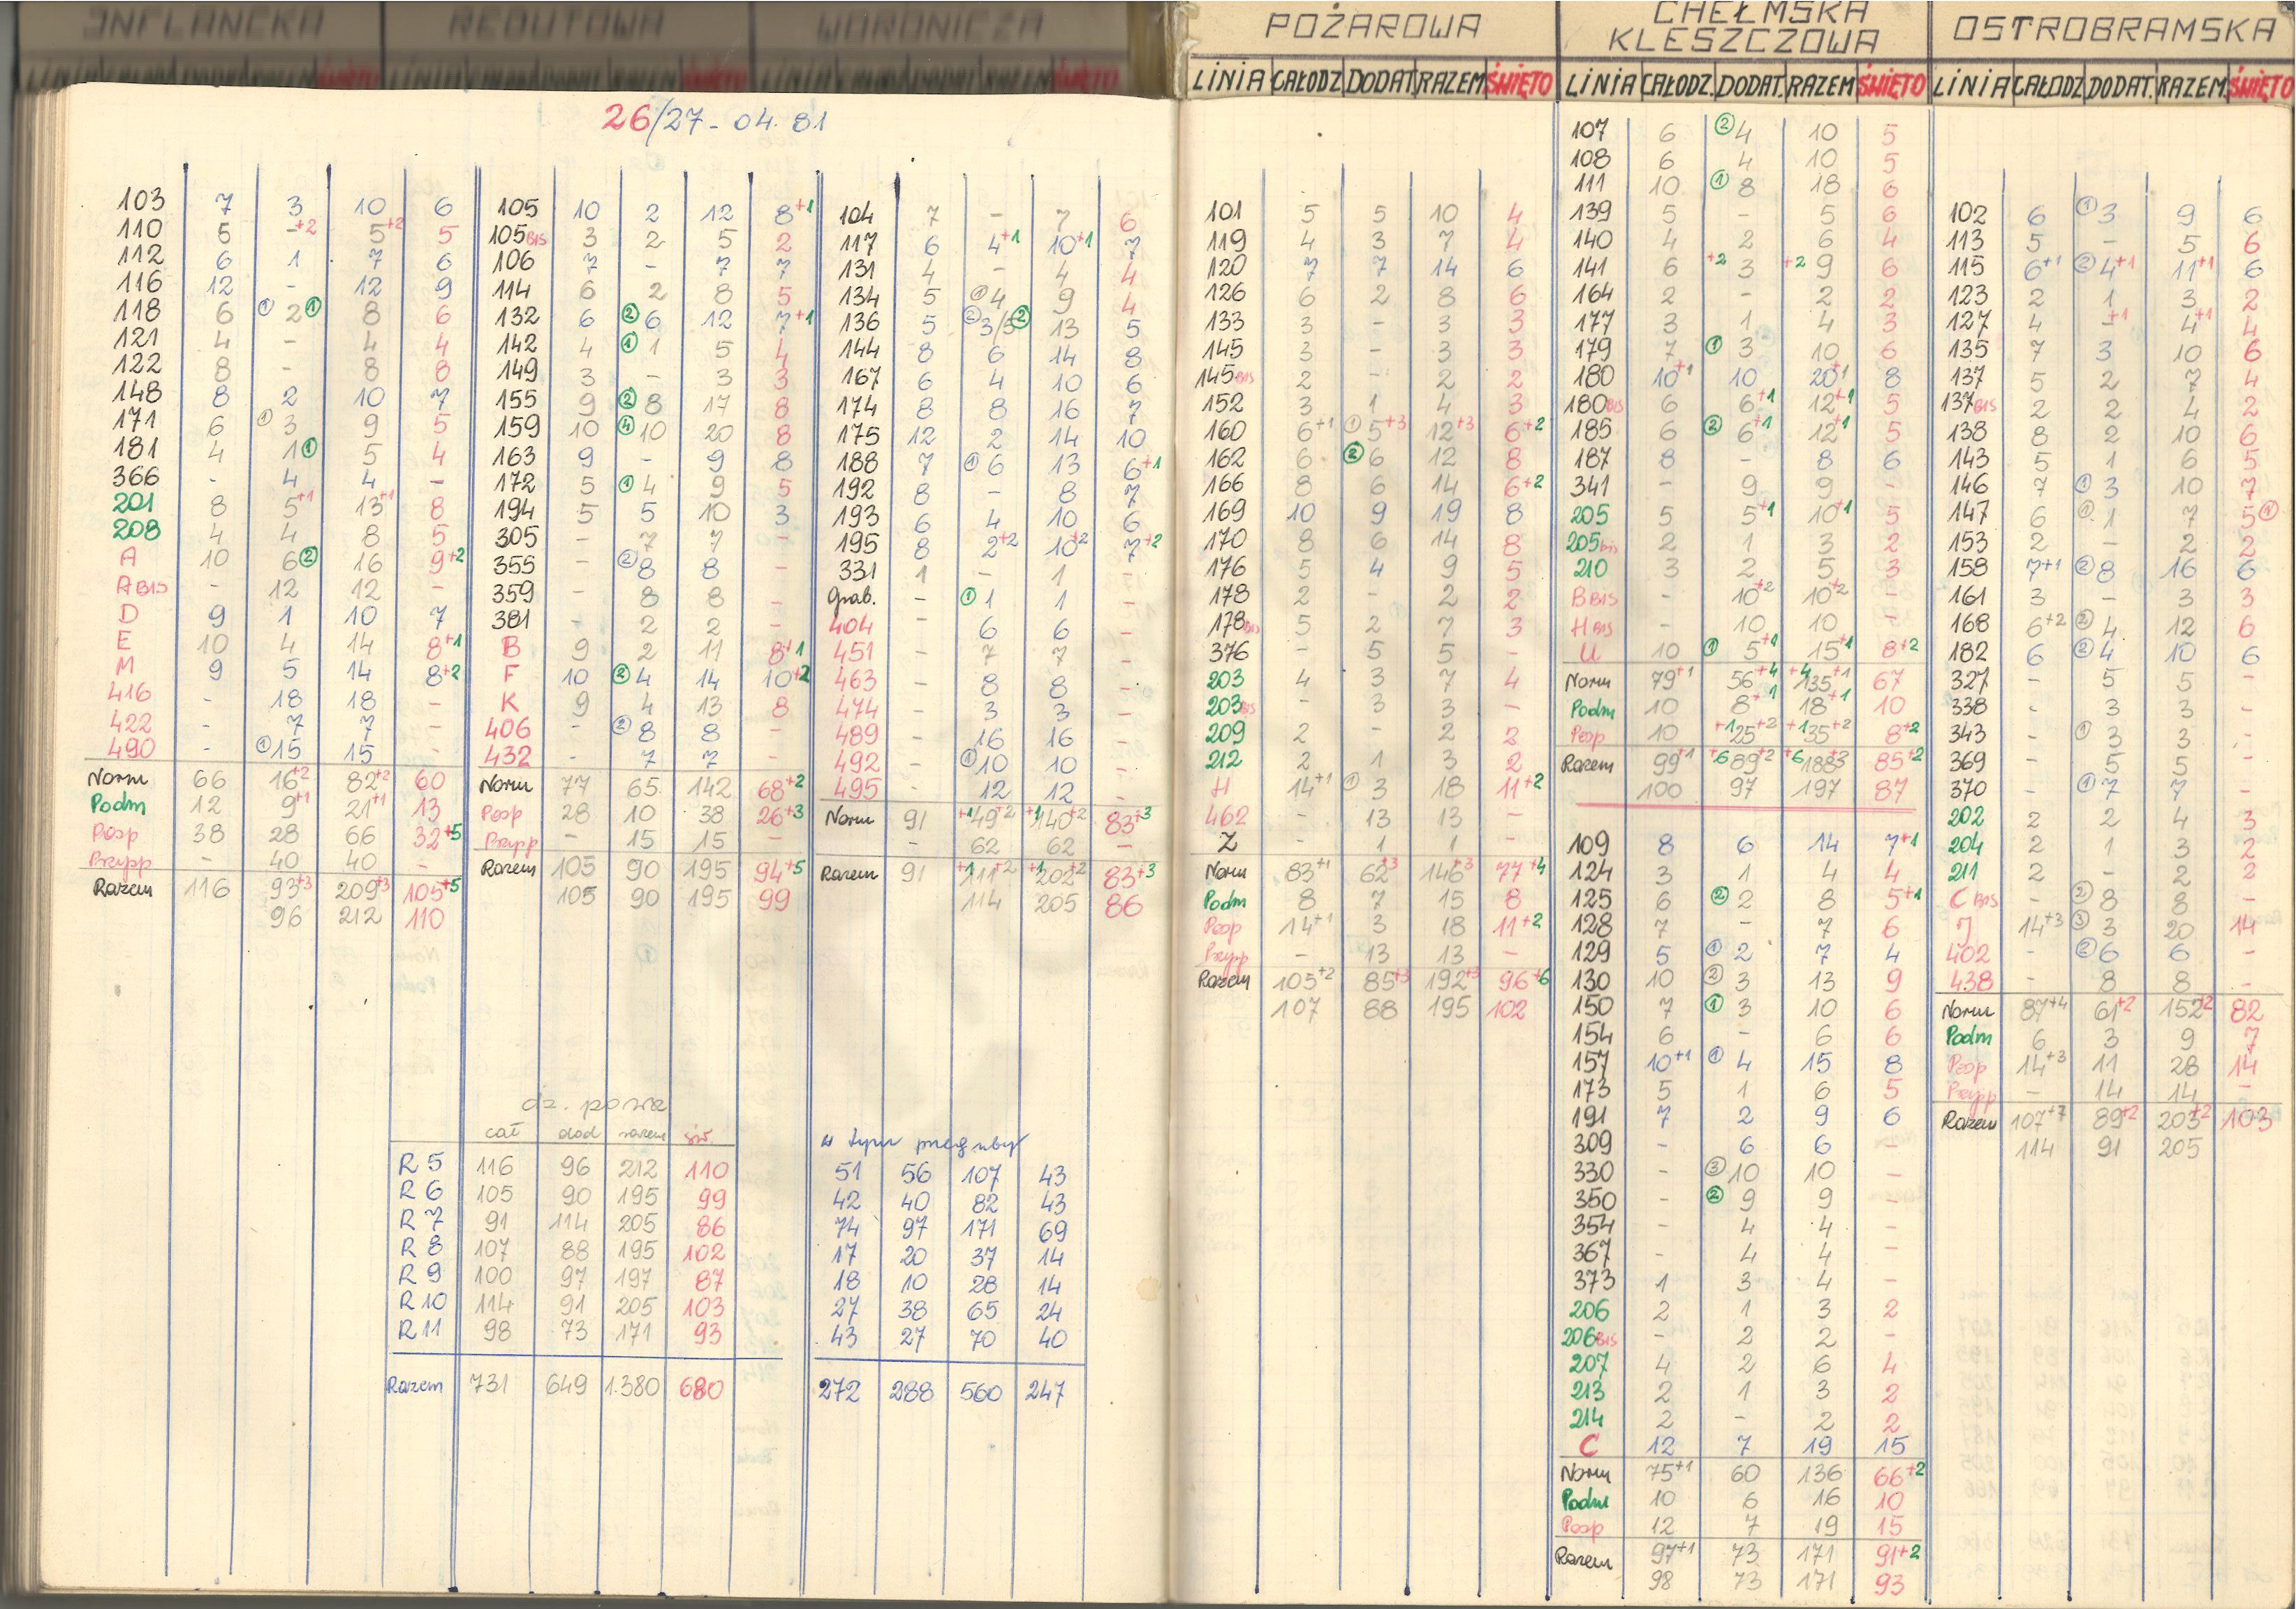 INFLANCKA
REDUTOWA
WORONICZA
POŻAROWA
CHEŁMSKA
KLESZCZOWA
OSTROBRAMSKA
LINIA CAŁODZ. DODAT. RAZEM ŚWIĘTO
LINIA CAŁODZ. DODAT. RAZEM ŚWIĘTO
LINIA CAŁODZ. DODAT. RAZEM ŚWIĘTO
26/27-04.81
103 7 3 10 6
110 5 -+2 5+2 5
112 6 1 7 6
116 12 - 12 9
118 6 ① 2 ① 8 6
121 4 - 4 4
122 8 - 8 8
148 8 2 10 7
171 6 ① 3 9 5
181 4 1 ① 5 4
366 - 4 4 -
201 8 5+1 13+1 8
208 4 4 8 5
A 10 6 ② 16 9+2
A BIS - 12 12 -
D 9 1 10 7
E 10 4 14 8+1
M 9 5 14 8+2
416 - 18 18 -
422 - 7 7 -
490 - ① 15 15 -
Norm 66 16+2 82+2 60
Podm 12 9+1 21+1 13
Posp 38 28 66 32+5
Przysp - 40 40 -
Razem 116 93+3 209+3 105+5
96 212 110
105 10 2 12 8+1
105 BIS 3 2 5 2
106 7 - 7 7
114 6 2 8 5
132 6 ② 6 12 7+1
142 4 ① 1 5 4
149 3 - 3 3
155 9 ② 8 17 8
159 10 ④ 10 20 8
163 9 - 9 8
172 5 ① 4 9 5
194 5 5 10 3
305 - 7 7 -
355 - ② 8 8 -
359 - 8 8 -
381 - 2 2 -
B 9 2 11 8+1
F 10 ② 4 14 10+2
K 9 4 13 8
406 - ② 8 8 -
432 - 7 7 -
Norm 77 65 142 68+2
Posp 28 10 38 26+3
Przysp - 15 15 -
Razem 105 90 195 94+5
105 90 195 99
104 7 - 7 6
117 6 4+1 10+1 7
131 4 - 4 4
134 5 ① 4 9 4
136 5 ② 3/5 ② 13 5
144 8 6 14 8
167 6 4 10 6
174 8 8 16 7
175 12 2 14 10
188 7 ① 6 13 6+1
192 8 - 8 7
193 6 4 10 6
195 8 2+2 10+2 7+2
331 1 - 1 -
Grab. - ① 1 1 -
404 - 6 6 -
451 - 7 7 -
463 - 8 8 -
474 - 3 3 -
489 - 16 16 -
492 - ① 10 10 -
495 - 12 12 -
Norm 91 +1 49+2 +1 140+2 83+3
- 62 62 -
Razem 91 +1 111+2 +1 202+2 83+3
114 205 86
dz. powsz
cał dod razem św.
R 5 116 96 212 110
R 6 105 90 195 99
R 7 91 114 205 86
R 8 107 88 195 102
R 9 100 97 197 87
R 10 114 91 205 103
R 11 98 73 171 93
Razem 731 649 1.380 680
w tym przeguby
51 56 107 43
42 40 82 43
74 97 171 69
17 20 37 14
18 10 28 14
27 38 65 24
43 27 70 40
272 288 560 247
101 5 5 10 4
119 4 3 7 4
120 7 7 14 6
126 6 2 8 6
133 3 - 3 3
145 3 - 3 3
145 BIS 2 - 2 2
152 3 1 4 3
160 6+1 ① 5+3 12+3 6+2
162 6 ② 6 12 8
166 8 6 14 6+2
169 10 9 19 8
170 8 6 14 8
176 5 4 9 5
178 2 - 2 2
178 BIS 5 2 7 3
376 - 5 5 -
203 4 3 7 4
203 BIS - 3 3 -
209 2 - 2 2
212 2 1 3 2
H 14+1 ① 3 18 11+2
462 - 13 13 -
Z - 1 1 -
Norm 83+1 62+3 146+3 77+4
Podm 8 7 15 8
Posp 14+1 3 18 11+2
Przysp - 13 13 -
Razem 105+2 85+3 192+3 96+6
107 88 195 102
107 6 ② 4 10 5
108 6 4 10 5
111 10 ① 8 18 6
139 5 - 5 6
140 4 2 6 4
141 6 +2 3 +2 9 6
164 2 - 2 2
177 3 1 4 3
179 7 ① 3 10 6
180 10+1 10 20+1 8
180 BIS 6 6+1 12+1 5
185 6 ② 6+1 12+1 5
187 8 - 8 6
341 - 9 9 -
205 5 5+1 10+1 5
205 bis 2 1 3 2
210 3 2 5 3
B BIS - 10+2 10+2 -
H BIS - 10 10 -
U 10 ① 5+1 15+1 8+2
Norm 79+1 56+4 +4 135+1 67
Podm 10 8+1 18+1 10
Posp 10 +1 25+2 +1 35+2 8+2
Razem 99+1 +6 89+2 +6 188+3 85+2
100 97 197 87
109 8 6 14 7+1
124 3 1 4 4
125 6 ② 2 8 5+1
128 7 - 7 6
129 5 ① 2 7 4
130 10 ② 3 13 9
150 7 ① 3 10 6
154 6 - 6 6
157 10+1 ① 4 15 8
173 5 1 6 5
191 7 2 9 6
309 - 6 6 -
330 - ③ 10 10 -
350 - ② 9 9 -
354 - 4 4 -
367 - 4 4 -
373 1 3 4 -
206 2 1 3 2
206 BIS - 2 2 -
207 4 2 6 4
213 2 1 3 2
214 2 - 2 2
C 12 7 19 15
Norm 75+1 60 136 66+2
Podm 10 6 16 10
Posp 12 7 19 15
Razem 97+1 73 171 91+2
98 73 171 93
102 6 ① 3 9 6
113 5 - 5 6
115 6+1 ② 4+1 11+1 6
123 2 1 3 2
127 4 -+1 4+1 4
135 7 3 10 6
137 5 2 7 4
137 BIS 2 2 4 2
138 8 2 10 6
143 5 1 6 5
146 7 ① 3 10 7
147 6 ① 1 7 5 ①
153 2 - 2 2
158 7+1 ② 8 16 6
161 3 - 3 3
168 6+2 ② 4 12 6
182 6 ② 4 10 6
327 - 5 5 -
338 - 3 3 -
343 - ① 3 3 -
369 - 5 5 -
370 - ① 7 7 -
202 2 2 4 3
204 2 1 3 2
211 2 - 2 2
C BIS - ② 8 8 -
J 14+3 ③ 3 20 14
402 - ② 6 6 -
438 - 8 8 -
Norm 87+4 61+2 152+2 82
Podm 6 3 9 7
Posp 14+3 11 28 14
Przysp - 14 14 -
Razem 107+7 89+2 203+2 103
114 91 205